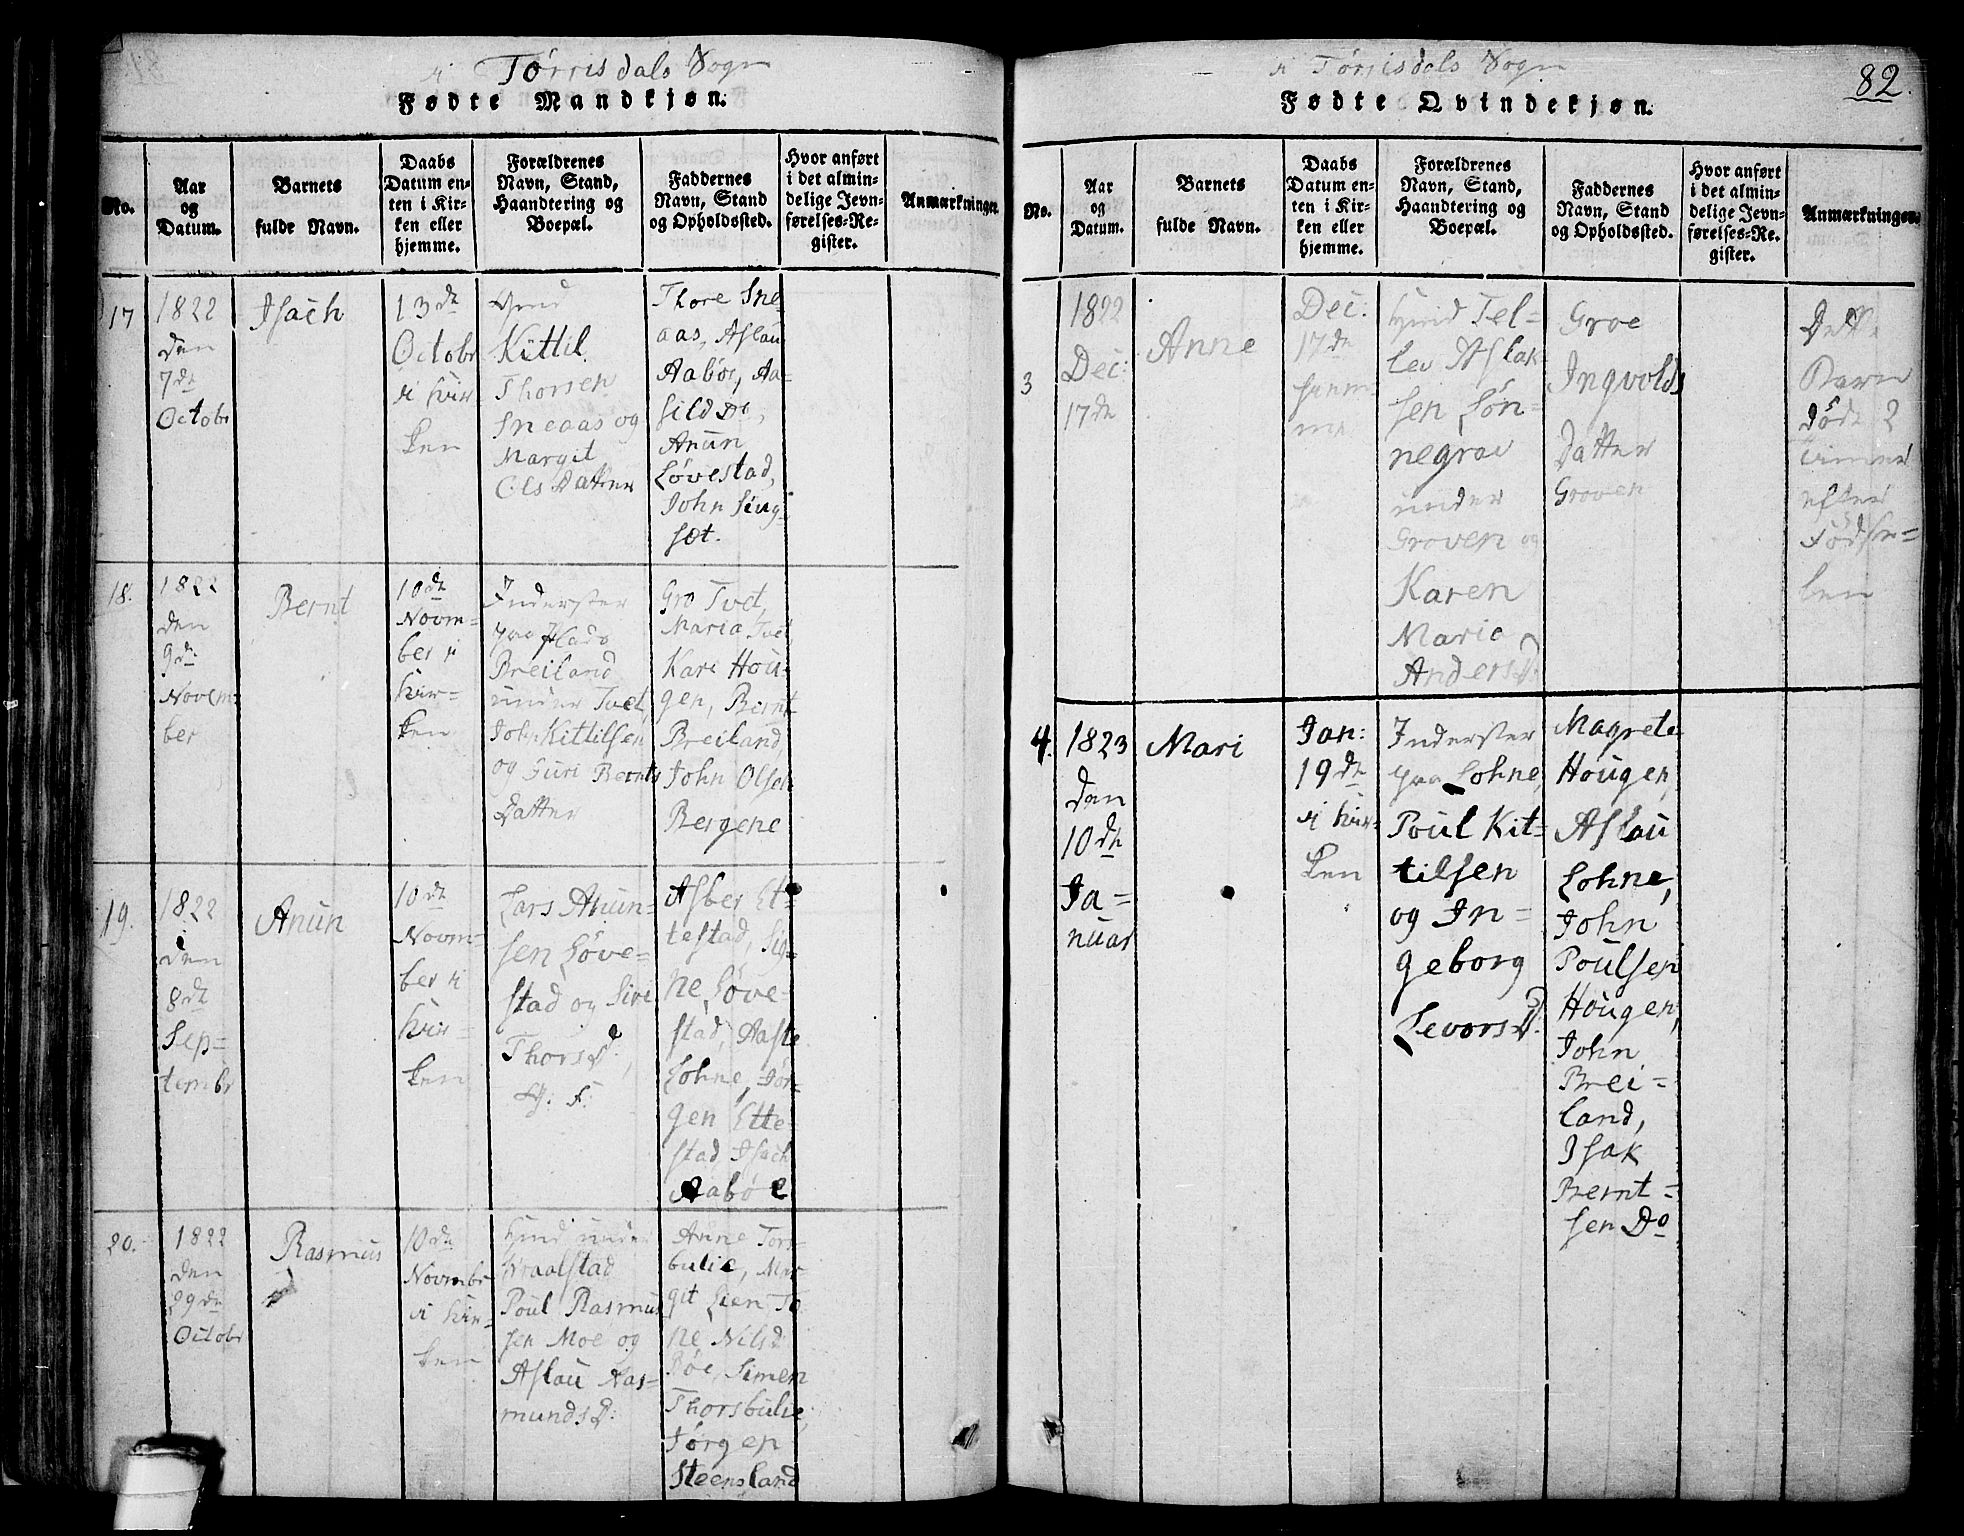 i Tørrisdals Sogn
Fødte Mandkjøn.
No.
Aar
og
Datum.
Barnets
fulde Navn.
Daabs
Datum en-
ten i Kir-
ken eller
hjemme.
Forældrenes
Navn, Stand,
Haandtering og
Boepæl.
Faddernes
Navn, Stand
og Opholdssted.
Hvor anført
i det almin-
delige Jevn-
førelses-Re-
gister.
Anmærkninger.
17
1822
den
7de
Octobr
Isach
13de
Octobr
i Kir
ken
Kittil
Thorsen
Sneaas og
Margit
Ols Datter
Thore Sne
aas, Aslau
Aabøe, Aa-
sild Do,
Anun
Løvestad,
John Ling-
set.
18.
1822
den
9de
Novem-
ber
Bernt
10de
Novm-
ber i
Kir-
ken
Inderster
paa Plads
Breiland
under Tvet,
John Kittilsen
og Guri Bernts
Datter
Gro Tvet,
Maria Tvet
Kari Hou-
gen, Bernt
Breiland,
John Olsen
Bergene
19.
1822
den
8de
Sep=
tembr
Anun
10de
Novm-
ber i
Kir-
ken
Lars Anun-
sen Løve-
stad og Siri
Thors D.,
G. F.
Asber Et-
testad, Sig-
ne Løve-
stad, Aaste
Lohne, Jør-
gen Ette-
stad, Isach
Aabøe
20.
1822
den
29de
Octobr
Rasmus
10de
Novmbr
i Kir-
ken
Hmd under
Kraalstad
Poul Rasmus
sen Moe og
Aslau Aas-
munds D:
Anne Tors-
bulie, Mar
git Lien To
ne Nilsd
Bøe, Simen
Thorsbulie,
Jørgen
Steensland
i Tørrisdals Sogn
82.
Fødte Qvindekjøn.
No.
Aar
og
Datum.
Barnets
fulde Navn.
Daabs
Datum en-
ten i Kir-
ken eller
hjemme.
Forældrenes
Navn, Stand,
Haandtering og
Boepæl.
Faddernes
Navn, Stand
og Opholdssted.
Hvor anført
i det almin-
delige Jevn-
førelses-Re-
gister.
Anmærkninger.
3
1822
Dec:
17de
Anne
Dec:
17de
hiem-
me
Hmd Tel=
lev Aslak
sen Søn-
negrav
under
Groven og
Karen
Maria
Anders D:
Groe
Ingvolds
Datter
Groven
Dette
Barn
døde 2
timer
efter
Fødse=
len
4.
1823
den
10de
Ja=
nuar
Mari
Jan:
19de
i Kir-
ken
Inderster
paa Lohne,
Poul Kit=
tilsen
og In=
geborg
Levors D.
Magrete
Hougen,
Aslau
Lohne,
John
Poulsen
Hougen,
John
Brei=
land,
Isak
Bernt=
sen Do